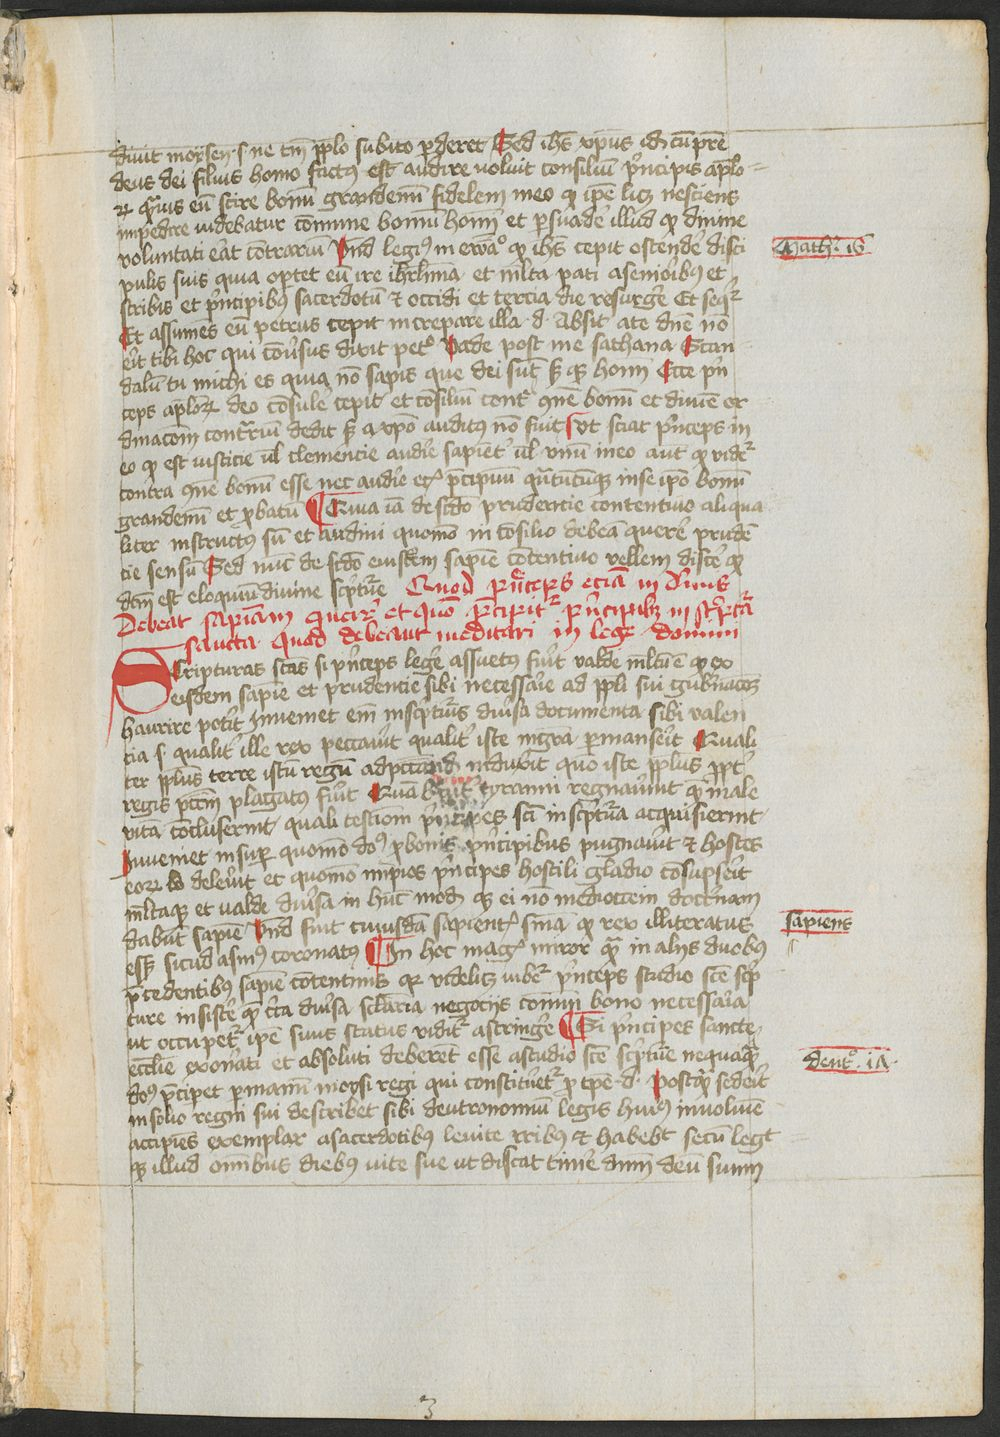 dixit moysen · s · ne tm̄ pp̄lo subito p̲deret Sed ih̄s xp̄us id̄ cū pr̄e
deus dei filius homo factus est audire voluit consiliū p̓ncipis apl̄o
ꝝ q̓uis eū scire bonū grandeuū fidelem in eo qꝫ ip̄e licꝫ nesciens
impedire videbatur cōmune bonū hoīm et p̲suade illud qꝫ diuine
voluntati erat cōtrariū Vnd̄ legit᷑ in ewāo qꝫ ih̄s cepit ostende᷑ disci
pulis suis quia oportet eū ire ih̄rlimā et ml̄ta pati a seniorībꝫ et
scribis et p̓ncipibꝫ sacerdotū ⁊ occidi et tercia die resurge᷑ Et seqr᷑
Et assumēs eū petrus cepit increpare illū · d · Absit a te dn̄e nō
erit tibi hoc qui cōu̓sus dixit pet᷑o Vade post me sathana Scan
dalū tu michi es quia nō sapis que dei sūt sꝫ q̓ hoīm Ecce p̓n
ceps apl̄oꝝ deo cōsule᷑ cepit et cōsiliū cont᷑ om̄e bonū et diuīe or
dinacōni contr᷑iū dedit sꝫ a xp̄o auditꝫ nō fuit Vt sciat p̓nceps in
eo qꝫ est iusticie vl̄ clemencie audi᷑e sapiēt᷑ vl̄ vnū in eo aūt qꝫ vidr᷑
contra om̄e bonū esse nec audi᷑e eciā p̓cipuū qn̄tūcūqꝫ in se ip̄o bonū
grandeuū et p̲batū ¶ Quia iā de scd̄o prudencie contentiuo aliqua
liter instructꝫ sū et audiui quomō in cōsilio debeā quere᷑ prudē
cie sensū Sed nūc de scd̄o eiusdem sapiē cōtentiuo vellem disce᷑ qꝫ
dcm̄ est eloquiū diuine sc̓pt᷑e Quod p̓nceps eciā in diuis
Debeat sapiam quere᷑ et quō p̓cipit᷑ p̓ncipibꝫ in sc̓pt᷑a
sancta quod debeant meditari in lege domini
Scripturas sc̄as si p̓nceps lege᷑ assuetꝫ fuit valde ml̄tū ē qꝫ ex
eisdem sapiē et prudencie sibi necessa᷑ie ad pp̄li sui gub̓nacōꝫ
haurire pot᷑it Inueniet em̄ in sc̓pt᷑is diu̓sa documenta sibi valen
cia s · qualit᷑ ille rex peccauit qualit᷑ iste in gr̄a p̲mansit Quali
ter pp̄lus terre istū regū ad pctm̄ induxit quo iste pp̄lus ppt᷑
regis pctm̄ plagatus fuit Quā b᷑uit᷑ tyranni regnauīnt q̓ male
vitā cōcluserint quali testioīm p̓ncipes sc̄i in sc̓pt᷑a acquisierint
Inueniet insup̲ quomō doꝰ p̲ bonis p̓ncipibus pugnauit ⁊ hostes
eoꝝ deleuit et quomō impios p̓ncipes hostili gladio cōsūpsit
ml̄taqꝫ et valde diu̓sa in hūc modū qꝫ ei nō mediocrem doct᷑nam
dabūt sapiē Vnd̄ fuit cuiusdā sapient᷑ s̄nia qꝫ rex illiteratus
esset sicud asinꝰ coronatꝰ ¶ In hoc magꝫ miror qꝫ in alijs duobꝫ
p̓cedentibus sapiē cōtentiuis qꝫ videlicꝫ iubet᷑ p̓nceps studio sc̄e sc̓p
ture insiste᷑ qꝫ c̄ra diu̓sa sclaria negocijs cōmuni bono necessaria
ut occupet᷑ ip̄e suus status vidit᷑ astringe᷑ ¶ Si p̓ncipes sancte
eccl̄ie exon̓ati et absoluti deberēt esse a studio sc̄e sc̓pt᷑e nequaq̄
doꝰ p̓cipet p̲ manū moysi regi qui constituet᷑ p̲ tp̄e · d · Postq̄ sederit
in solio regni sui describet sibi deutronomiū legis huiꝰ in volumīe
accipiēs exemplar a sacerdotibꝫ leuite tribꝰ ⁊ habebt secū legt
qꝫ illud om̄ibus diebꝫ vite sue ut discat timē dnm̄ deū suum
Math᷑ · 16
Sapiens
deut᷑o · 17 ·
3